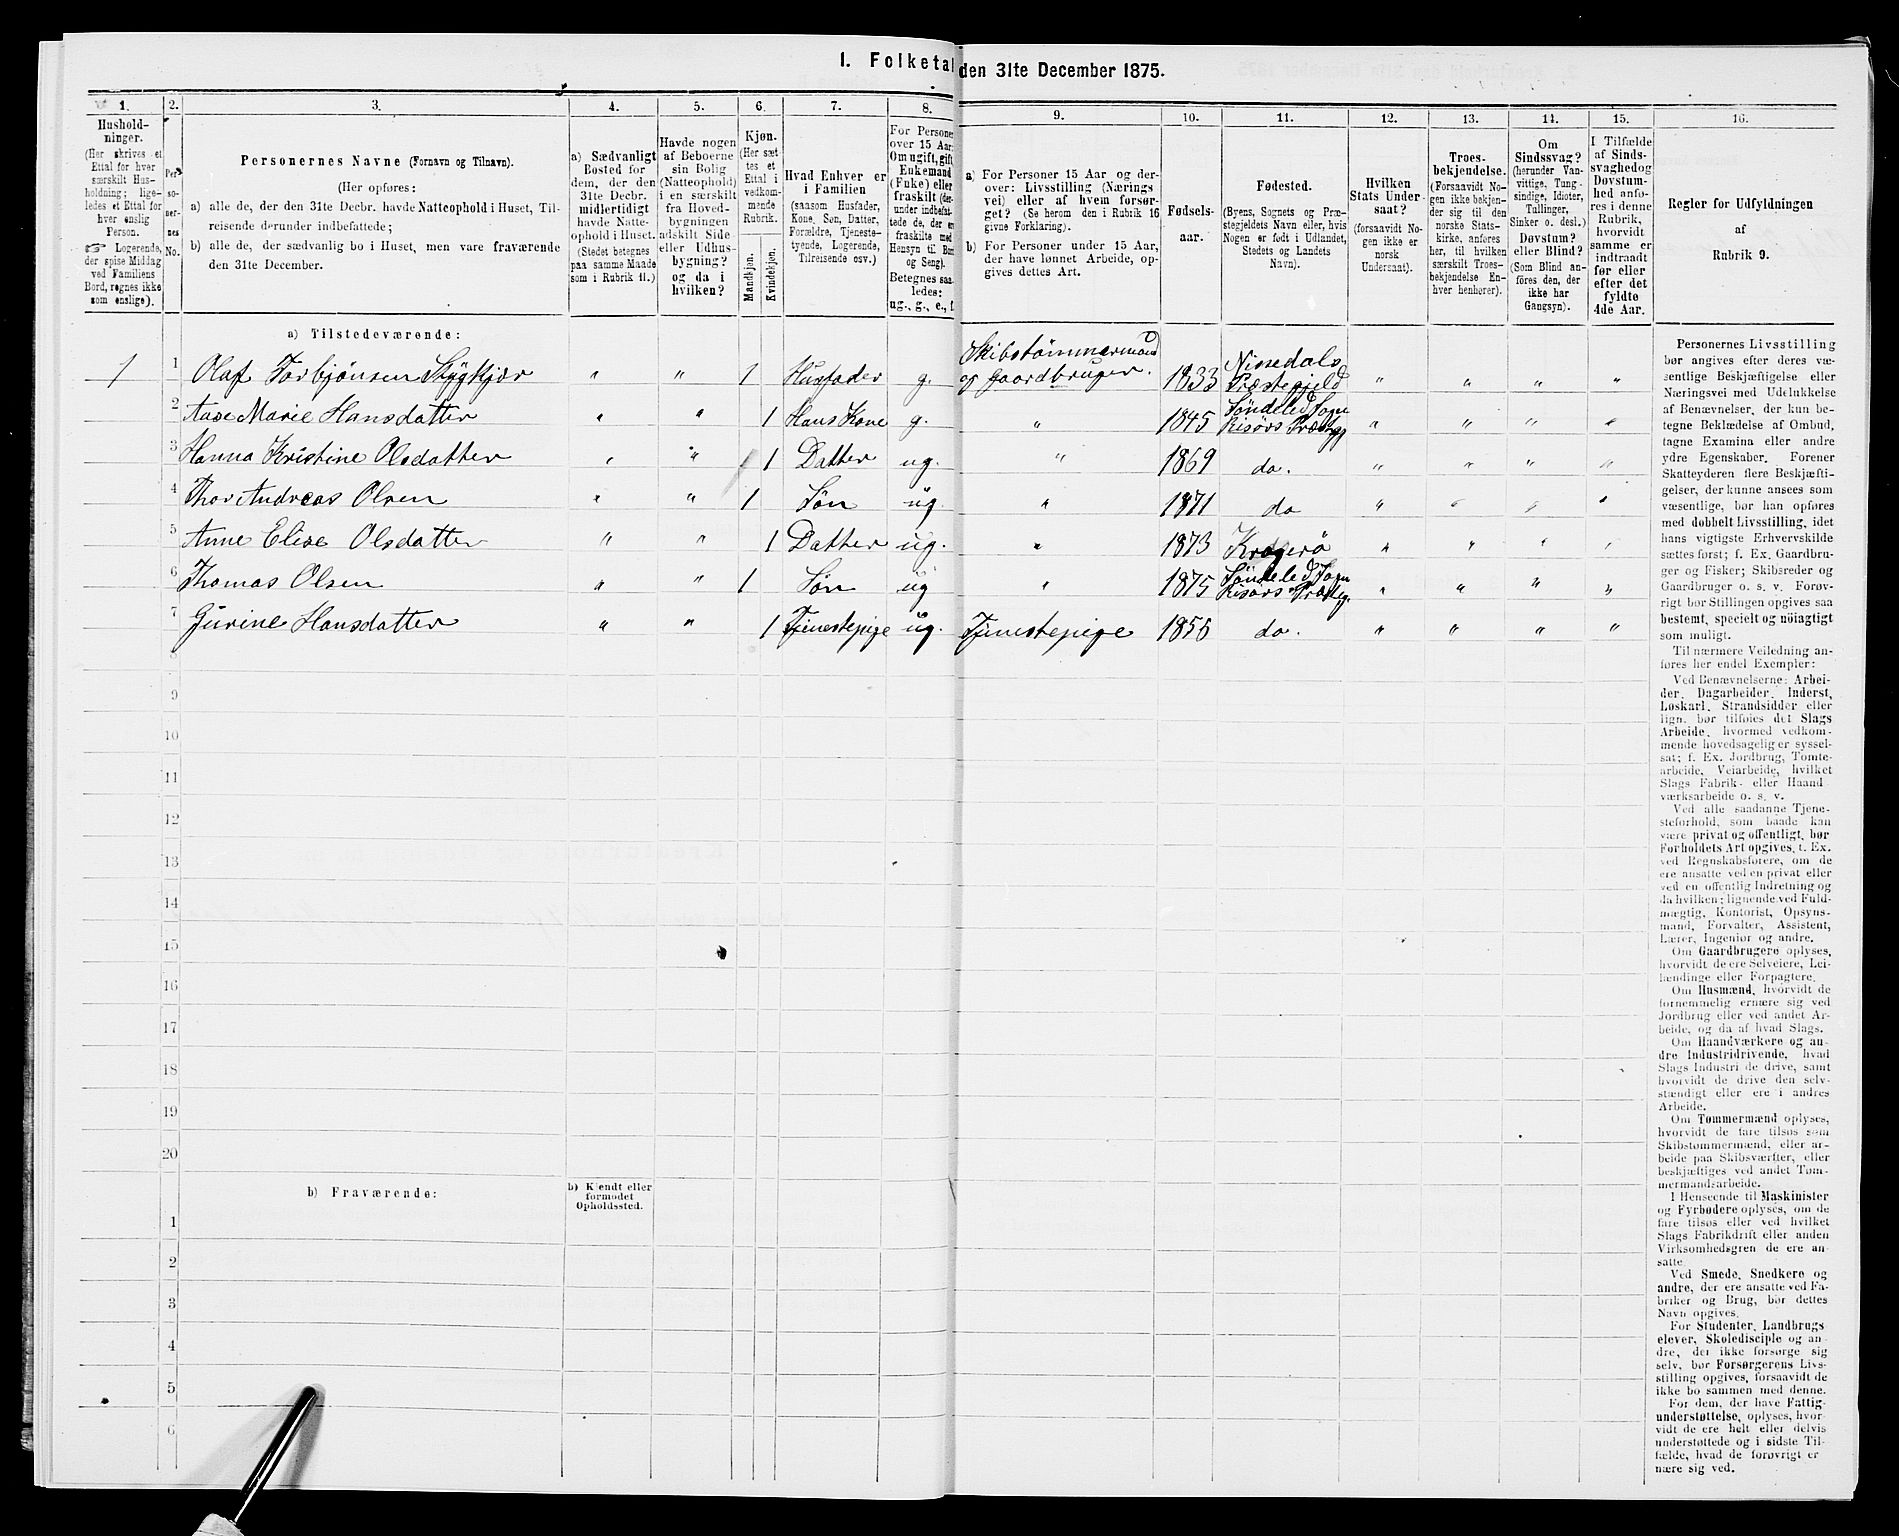 1. Folketal den 31te December 1875.
1. 2. 3. 4. 5. 6. 7. 8. 9. 10. 11. 12. 13. 14. 15. 16.
Hushold-
ninger.
(Her skrives et
Ettal for hver
særskilt Hus-
holdning; lige-
ledes et Ettal for
hver enslig
Person.
☞ Logerende,
der spise Middag
ved Familiens
Bord, regnes ikke
som enslige).
Per-
so-
ner-
nes
No.
Personernes Navne (Fornavn og Tilnavn).
(Her opføres:
a) alle de, der den 31te Decbr. havde Natteophold i Huset, Til-
reisende derunder indbefattede;
b) alle de, der sædvanlig bo i Huset, men vare fraværende
den 31te December.
a) Sædvanligt
Bosted for
dem, der den
31te Decbr.
midlertidigt
havde Natte-
ophold i Huset.
(Stedet betegnes
paa samme Maade
som i Rubrik 11.)
Havde nogen
af Beboerne
sin Bolig
(Natteophold)
i en særskilt
fra Hoved-
bygningen
adskilt Side-
eller Udhus-
bygning?
og da i
hvilken?
Kjøn.
(Her sæt-
tes et
Ettal i
vedkom-
mende
Rubrik.
Mandkjøn.
Kvindekjøn.
Hvad Enhver er
i Familien
(saasom Husfader,
Kone, Søn, Datter,
Forældre, Tjeneste-
tyende, Logerende,
Tilreisende osv.)
For Personer
over 15 Aar:
Om ugift, gift,
Enkemand
(Enke) eller
fraskilt (der-
under indbefat-
tede de, der ere
fraskilte med
Hensyn til Bord
og Seng).
Betegnes saa-
ledes:
ug., g., e., f.
a) For Personer 15 Aar og der-
over: Livsstilling (Nærings
vei) eller af hvem forsør-
get? (Se herom den i Rubrik 16
givne Forklaring).
b) For Personer under 15 Aar,
der have lønnet Arbeide, op-
gives dettes Art.
Fødsels-
aar.
Fødested.
(Byens, Sognets og Præ-
stegjeldets Navn eller, hvis
Nogen er født i Udlandet,
Stedets og Landets
Navn).
Hvilken
Stats Under-
saat?
(forsaavidt No-
gen ikke er
norsk
Undersaat).
Troes-
bekjendelse.
(Forsaavidt No-
gen ikke bekjen-
der sig til den
norske Stats-
kirke, anføres
her, til hvilken
særskilt Troes-
bekjendelse En-
hver henhører).
Om
Sindssvag?
(herunder Van-
vittige, Tung-
sindige, Idioter,
Tullinger,
Sinker o. desl.)
Døvstum?
eller Blind?
(Som Blind an-
føres den, der
ikke har
Gangsyn).
I Tilfælde
af Sinds-
svaghed og
Døvstum-
hed anfø-
res i denne
Rubrik,
hvorvidt
samme er
indtraadt
før eller
efter det
fyldte
4de Aar.
Regler for Udfyldningen
af
Rubrik 9.
a) Tilstedeværende:
Skibstømmermand
1 1 Olaf Torbjönsen Stygkjær " " 1 Husfader g. og Gaardbruger. 1833 Nissedals Præstegjeld " " " "
2 Aase Marie Hansdatter " " 1 Hans Kone g. " 1845 Söndeled Sogn Risörs Præstg " " " "
3 Hanna Kristine Olsdatter " " 1 Datter ug. " 1869 do. " " " "
4 Thor Andreas Olsen " " 1 Sön ug. " 1871 do " " " "
5 Anne Elise Olsdatter " " 1 Datter ug. " 1873 Kragerö " " " "
6 Thomas Olsen " " 1 Sön ug " 1875 Söndeled Sogn Risörs Præsteg. " " " "
7 Gurine Hansdatter " " 1 Tjenestepige ug. Tjenestepige 1856 do. " " " "
8
9
10
11
12
13
14
15
16
17
18
19
20
b) Fraværende:
b) Kjendt eller
formodet
Opholdssted.
1
2
3
4
5
6
Personernes Livsstilling
bør angives efter deres væ-
sentlige Beskjæftigelse eller
Næringsvei med Udelukkelse
af Benævnelser, der kun be-
tegne Beklædelse af Ombud,
tagne Examina eller andre
ydre Egenskaber. Forener
Skatteyderen flere Beskjæfti-
gelser, der kunne ansees som
væsentlige, bør han opføres
med dobbelt Livsstilling, idet
hans vigtigste Erhvervskilde
sættes først; f. Ex. Gaardbru-
ger og Fisker; Skibsreder og
Gaardbruger o. s. v. Forøv-
rigt bør Stillingen opgives saa
bestemt, specielt og nöiagtigt
som muligt.
Til nærmere Veiledning an-
føres her endel Exempler:
Ved Benævnelserne: Arbei-
der, Dagarbeider, Inderst,
Løskarl, Strandsidder eller
lign. bør tilføies det Slags
Arbeide, hvormed vedkom-
mende hovedsagelig er syssel-
sat; f. Ex. Jordbrug, Tomte-
arbeide, Veiarbeide, hvilket
Slags Fabrik- eller Haand
værksarbeide o. s. v.
Ved alle saadanne Tjene-
steforhold, som baade kan
være privat og offentligt, bør
Forholdets Art opgives, f. Ex.
ved Regnskabsførere, om de
ere ansatte ved en privat eller
ved en offentlig Indretning og
da hvilken; lignende ved Fuld-
mægtig, Kontorist, Opsyns-
mand, Forvalter, Assistent,
Lærer, Ingeniør og andre.
Om Gaardbrugere oplyses,
hvorvidt de ere Selveiere, Lei-
lændinge eller Forpagtere.
Om Husmænd, hvorvidt de
fornemmelig ernære sig ved
Jordbrug eller ved andet Ar-
beide, og da af hvad Slags.
Om Haandværkere og an-
dre Industridrivende, hvad
Slags Industri de drive, samt
hvorvidt de drive den selv-
stændigt eller ere i andres
Arbeide.
Om Tømmermænd oplyses,
hvorvidt de fare tilsøs som
Skibstømmermænd, eller ar-
beide paa Skibsværfter, eller
beskjæftiges ved andet Tøm-
mermandsarbeide.
I Henseende til Maskinister
og Fyrbødere oplyses, om de
fare tilsøs eller ved hvilket
Slags Fabrikdrift eller anden
Virksomhedsgren de ere an-
satte.
Ved Smede, Snedkere og
andre, der ere ansatte ved Fa-
briker og Brug, bør dettes
Navn opgives.
For Studenter, Landbrugs
elever, Skoledisciple og an-
dre, der ikke forsørge sig
selv, bør Forsørgerens Livs-
stilling opgives, forsaavidt de
ikke bo sammen med denne.
For dem, der have Fattig-
understøttelse, oplyses, hvor-
vidt de ere helt eller delvis
understøttede og i sidste Til-
fælde, hvad de forøvrigt er
nære sig ved.